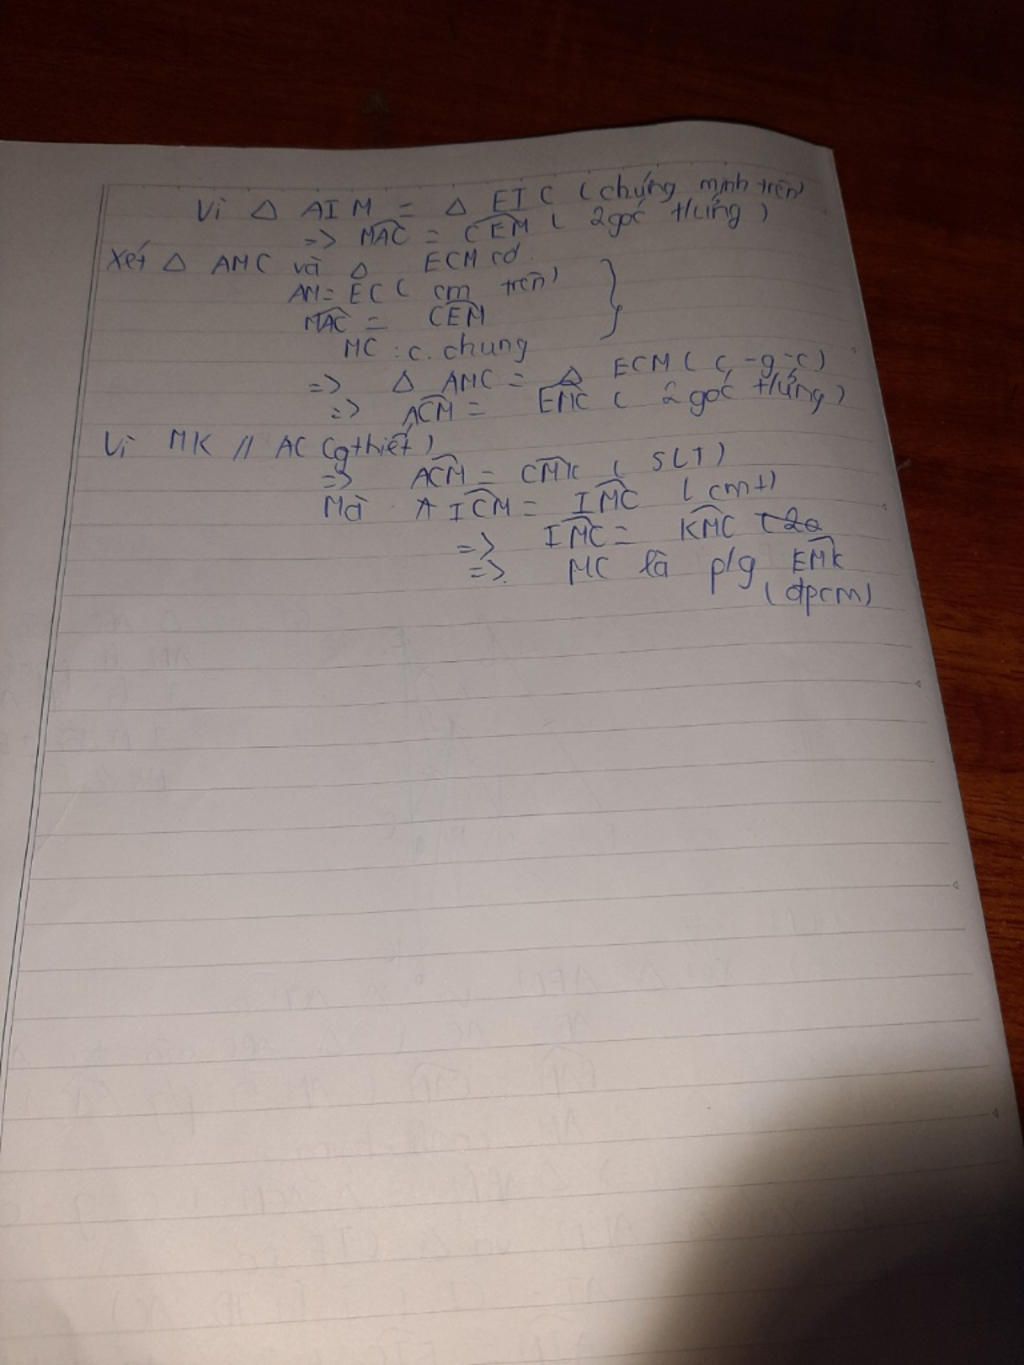 Vì △ AIM = △ EIC (chứng minh trên)
=> MAC = CEM ( 2 góc t/ứng )
Xét △ AMC và △ ECM có
AM = EC ( cm trên)
MAC = CEM
MC : c. chung
=> △ AMC = △ ECM ( c-g-c)
=> ACM = EMC ( 2 góc t/ứng )
Vì MK // AC (gthiết)
=> ACM = CMK ( SLT )
Mà ICM = IMC ( cmt)
=> IMC = KMC
=> MC là p/g EMK
(đpcm)